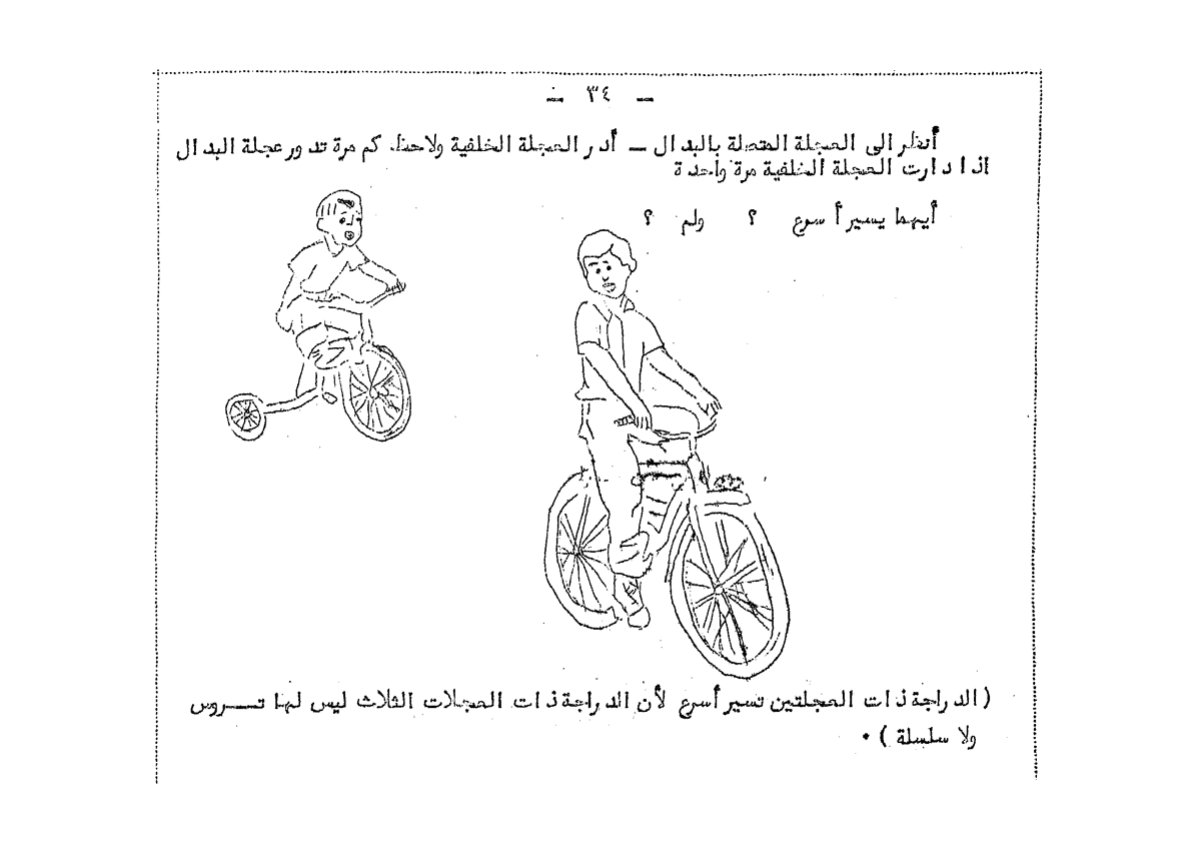 - ٣٤ -
أنظر الى العجلة المتصلة بالبدال - أدر العجلة الخلفية ولاحظ كم مرة تدور عجلة البدال
اذا دارت العجلة الخلفية مرة واحدة
أيهما يسير أسرع ؟ ولم ؟
( الدراجة ذات العجلتين تسير أسرع لأن الدراجة ذات العجلات الثلاث ليس لها تـــروس
ولا سلسلة ) .